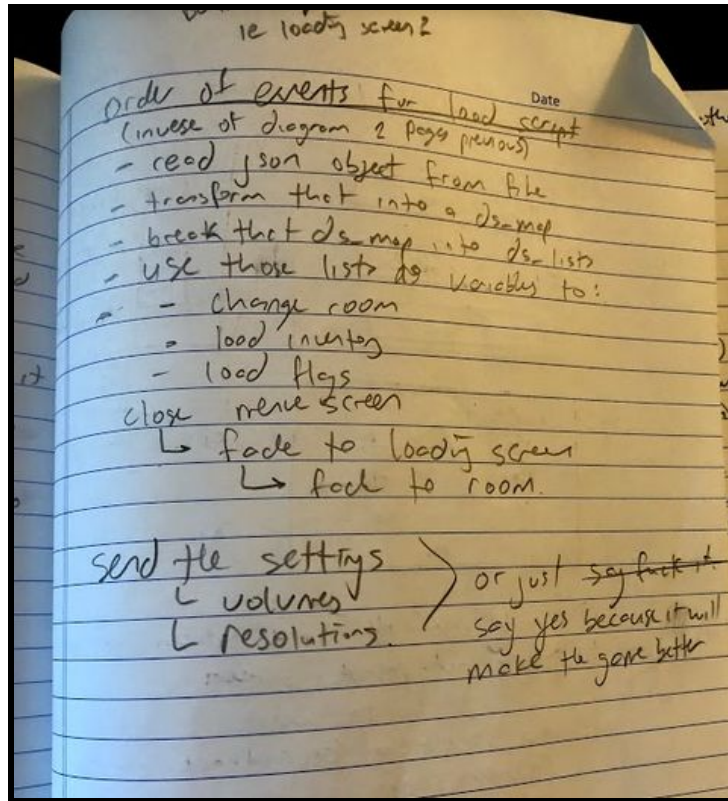 ie loading screen?
Date
order of events for load script
(inverse of diagram 2 pages previous)
- read json object from file
- transform that into a ds_map
- break that ds_map into ds_lists
- use those lists as variables to:
- change room
- load inventory
- load flags
close menue screen
↳ fade to loading screen
↳ fade to room.
send the settings
└ volumes
└ resolutions.
or just say fuck it
say yes because it will
make the game better